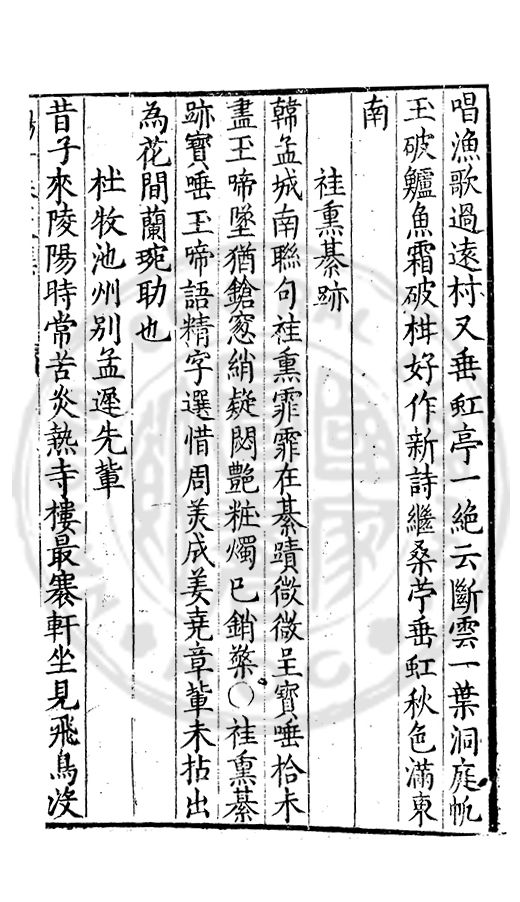 唱漁歌過遠村又垂虹亭一絶云斷雲一葉洞庭帆
玉破鱸魚霜破柑好作新詩繼桑苧垂虹秋色滿東
南
袿熏綦跡
韓孟城南聯句袿熏霏霏在綦蹟微微呈寳唾拾未
盡玉啼墜猶鎗窓綃疑閟艶粧燭已銷檠○袿熏綦
跡寳唾玉啼語精字選惜周美成姜堯章輩未拈出
為花間蘭琬助也
杜牧池州别孟遲先輩
昔子來陵陽時常苦炎熱寺樓最褰軒坐見飛鳥没